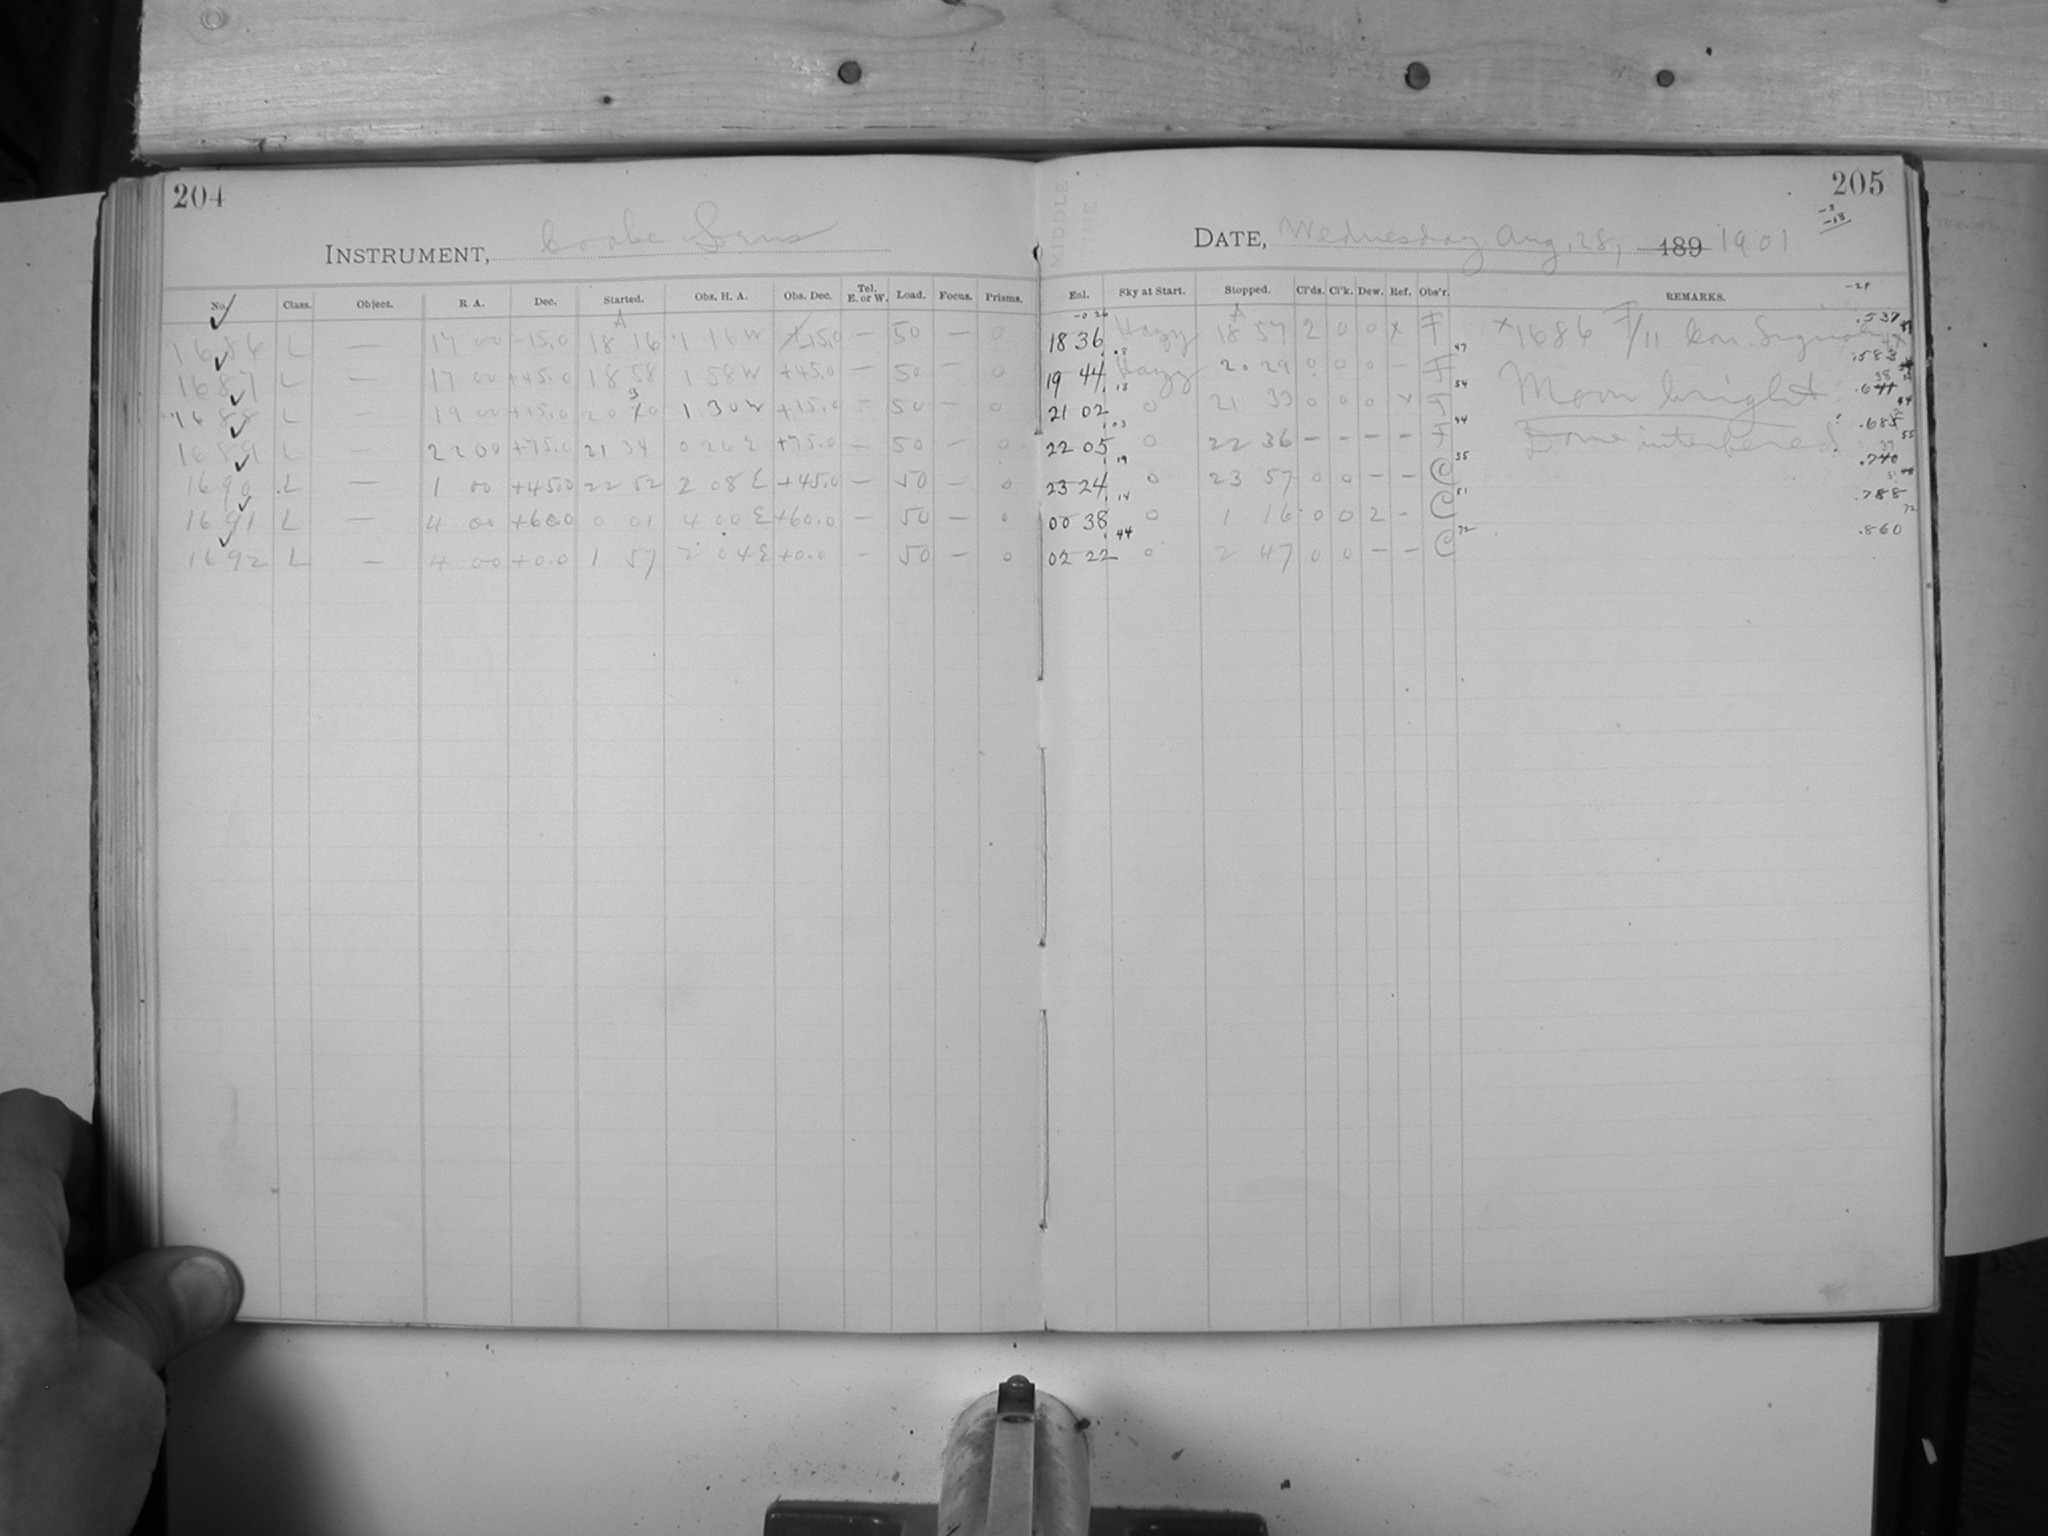 204
INSTRUMENT, Cooke Lens
No. Class. Object. R. A. Dec. Started. Obs. H. A. Obs. Dec. Tel. E. or W. Load. Focus. Prisms.
1686 L — 17 00 -15.0 18 16 1 16 W -15.0 — 50 — 0
1687 L — 17 00 +45.0 18 58 1 58 W +45.0 — 50 — 0
1688 L — 19 00 +15.0 20 30 1 30 W +15.0 — 50 — 0
1689 L — 22 00 +75.0 21 34 0 26 E +75.0 — 50 — 0
1690 L — 1 00 +45.0 22 52 2 08 E +45.0 — 50 — 0
1691 L — 4 00 +60.0 0 01 4 00 E +60.0 — 50 — 0
1692 L — 4 00 +0.0 1 57 2 04 E +0.0 — 50 — 0
205
MIDDLE TIME
DATE, Wednesday Aug. 28, 189 1901
-3
-18
Enl. Sky at Start. Stopped. Cl'ds. Cl'k. Dew. Ref. Obs'r. REMARKS.
18 36 Hazy 18 57 2 0 0 x F x1686 F/11 .537
19 44 Hazy 20 29 0 0 0 - F Moon bright .583
21 02 0 21 33 0 0 0 x F Dome interfered
22 05 0 22 36 - - - - F .685
23 24 0 23 57 0 0 - - C .740
00 38 0 1 16 0 0 2 - C .788
02 22 0 2 47 0 0 - - C .860